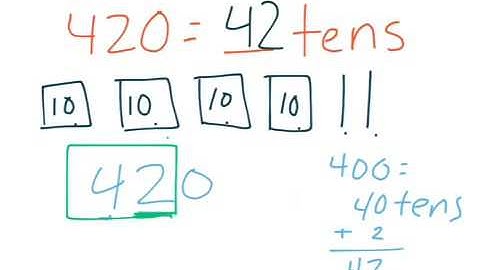 420 = 42 tens
10 10 10 10
420
400 =
40 tens
+ 2
42